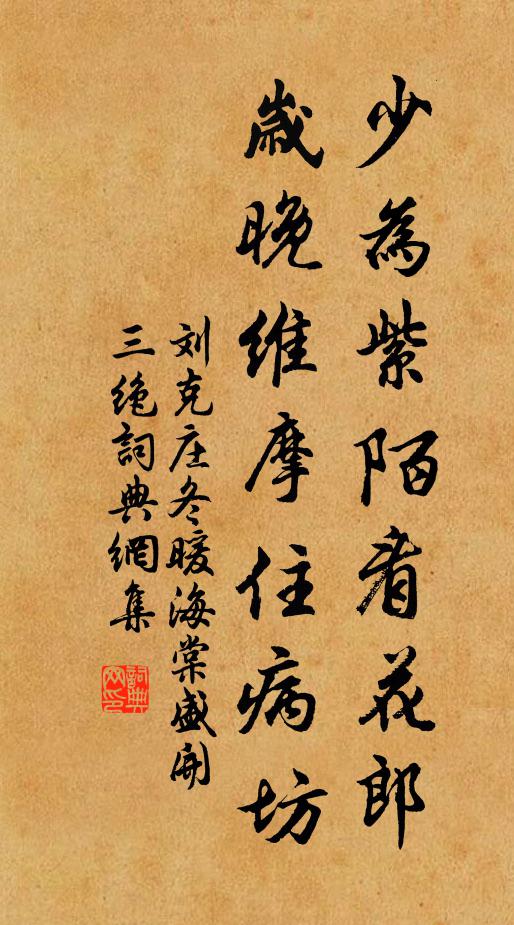 少為紫陌看花郎
歲晚維摩住病坊
刘克庄冬暖海棠盛開
三絶詞典網集
詞典
网印